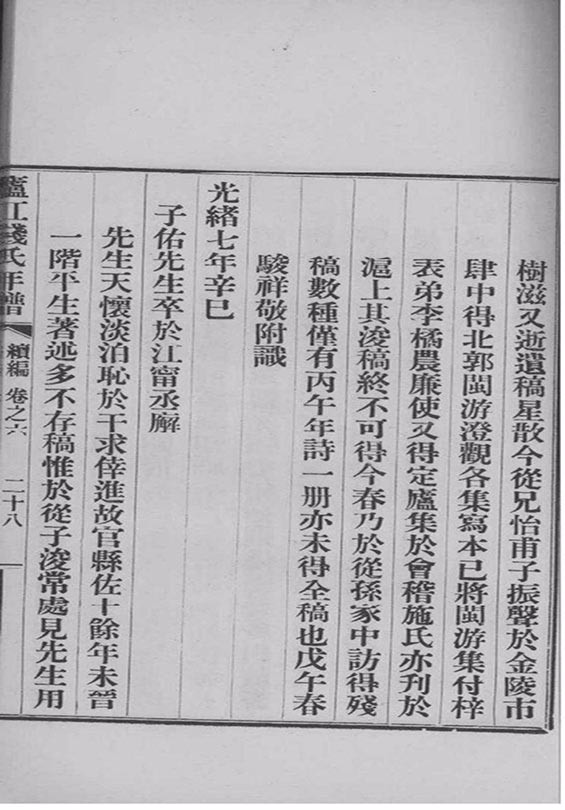 樹滋又逝遺稿星散今從兄怡甫子振聲於金陵市
肆中得北郭閩游澄觀各集寫本已將閩游集付梓
表弟李橘農廉使又得定廬集於會稽施氏亦刊於
滬上其浚稿終不可得今春乃於從孫家中訪得殘
稿數種僅有丙午年詩一册亦未得全稿也戊午春
駿祥敬附識
光緒七年辛巳
子佑先生卒於江甯丞廨
先生天懷淡泊恥於干求倖進故官縣佐十餘年未晉
一階平生著述多不存稿惟於從子浚常處見先生用
廬江錢氏年譜 續編 卷之六 二十八